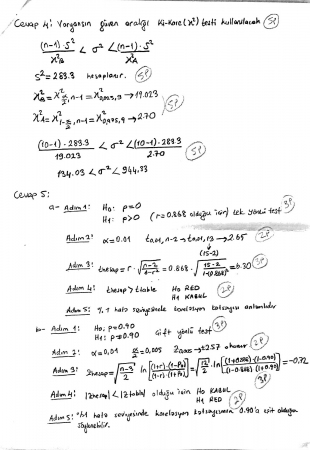 Cevap 4: Varyansın güven aralığı Ki-Kare (χ²) testi kullanılacak 5P
(n-1)·S²/χ²B < σ² < (n-1)·S²/χ²A
S² = 283.3 hesaplanır. 5P
χ²B = χ²α/2, n-1 = χ²0,025,9 → 19.023 5P
χ²A = χ²1-α/2, n-1 = χ²0,975,9 → 2.70
(10-1)·283.3/19.023 < σ² < (10-1)·283.3/2.70 5P
134.03 < σ² < 944.33
Cevap 5:
a- Adım 1: H0: ρ=0
H1: ρ>0 (r=0.868 olduğu için) tek yönlü test 3P
Adım 2: α=0.01 tα,n-2 → t0,01,13 → 2.65 2P
Adım 3: thesap = r·√(n-2/1-r²) = 0.868·√(15-2/1-(0.868)²) = 6.30 3P
(15-2)
Adım 4: thesap > ttable H0 RED 2P
H1 KABUL
Adım 5: %1 hata seviyesinde korelasyon katsayısı anlamlıdır
b- Adım 1: H0: ρ=0.90
H1: ρ≠0.90 Çift yönlü test 3P
Adım 2: α=0,01 α/2=0,005 Z0,005→2.57 okunur 2P
Adım 3: Zhesap = √(n-3)/2 ln[(1+r)·(1-ρ0)/(1-r)·(1+ρ0)] = √12/2 · ln[(1+0.868)·(1-0.90)/(1-0.868)·(1+0.90)] = -0,72
3P
Adım 4: |Zhesap| < |Ztablo| olduğu için H0 KABUL
H1 RED 2P
Adım 5: %1 hata seviyesinde korelasyon katsayısının 0.90'a eşit olduğu
söylenebilir.